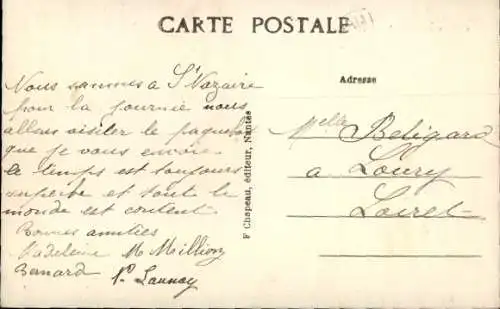 CARTE POSTALE
Adresse
Nous sommes a St Nazaire
pour la journée nous
allons visiter le paquebot
que je vous envoie
le temps est toujours
superbe et tout le
monde est content
Bonnes amities
Madeleine M Million
Bernard P. Launay
F Chapeau, éditeur, Nantes
Melle Beligard
a Loury
Loiret